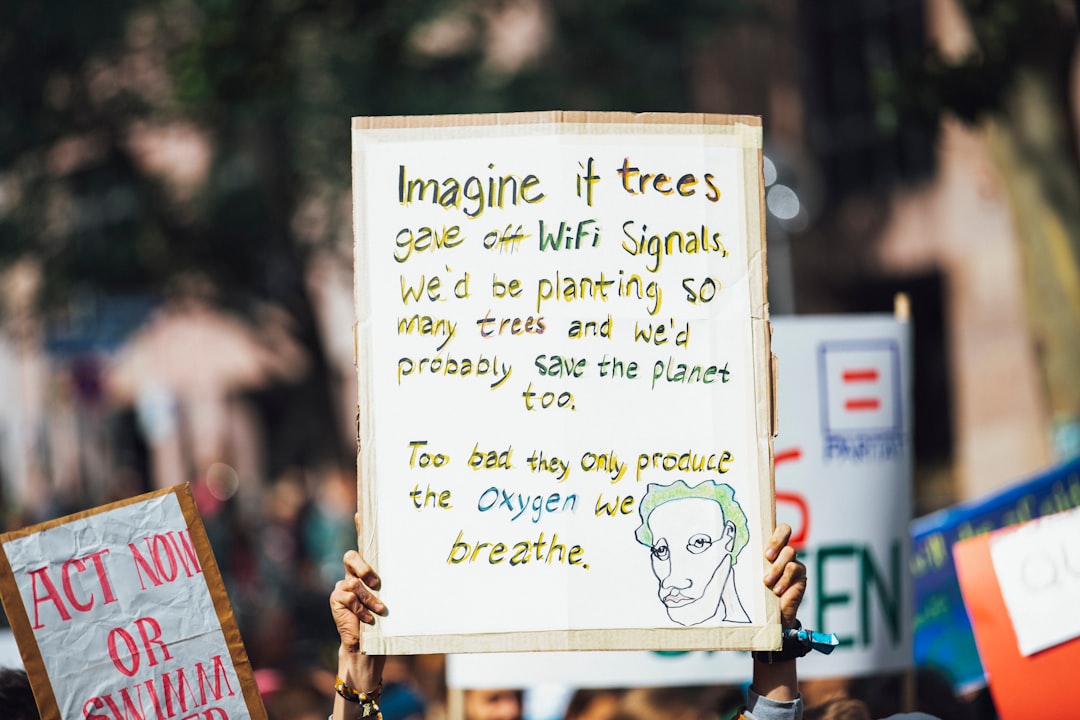 Imagine if trees
gave off WiFi Signals,
We'd be planting so
many trees and we'd
probably save the planet
too.
Too bad they only produce
the Oxygen we
breathe.
ACT NOW
OR
SWIM